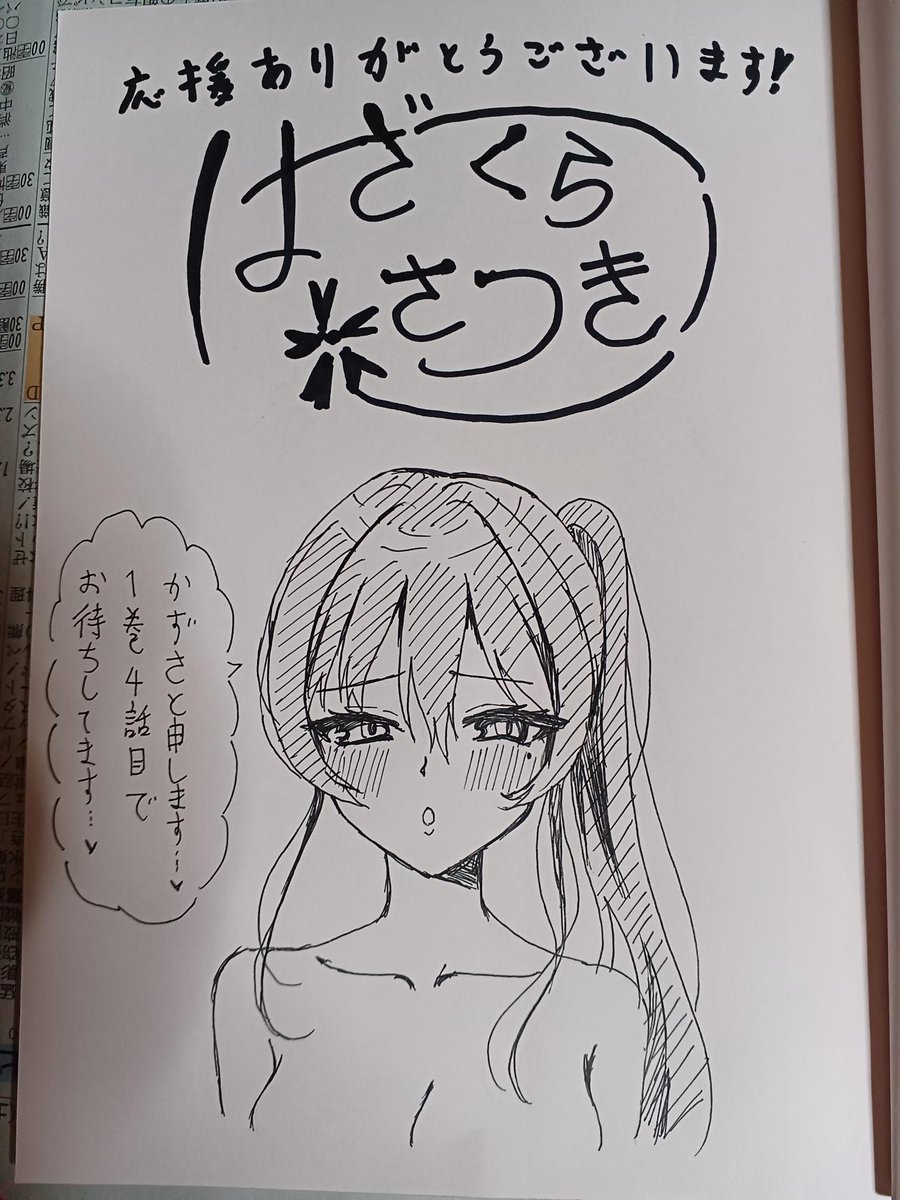 応援ありがとうございます!
はざくら
さつき
かずさと申します…♥
1巻4話目で
お待ちしてます…♥